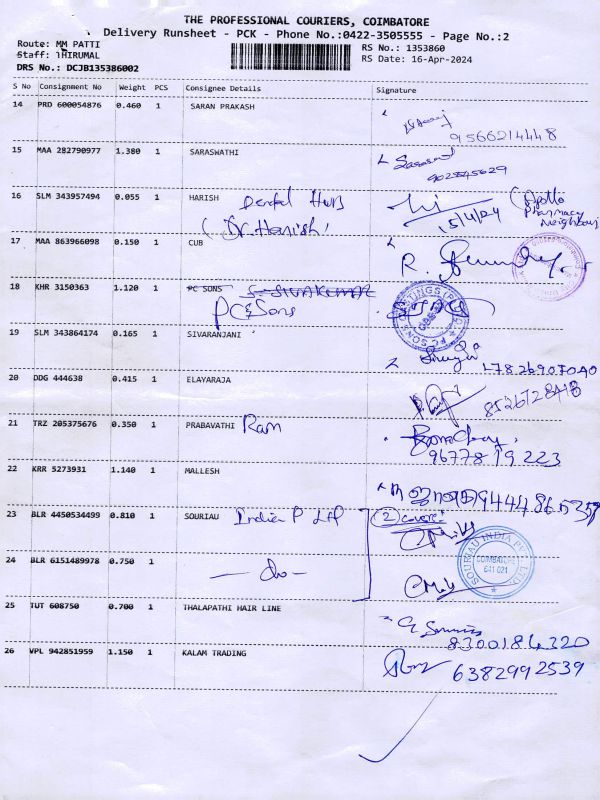 THE PROFESSIONAL COURIERS, COIMBATORE
Delivery Runsheet - PCK - Phone No.:0422-3505555 - Page No.:2
Route: MM PATTI
RS No.: 1353860
Staff: THIRUMAL
RS Date: 16-Apr-2024
DRS No.: DCJB135386002
S No Consignment No Weight PCS Consignee Details Signature
14 PRD 600054876 0.460 1 SARAN PRAKASH
9566214448
15 MAA 282790977 1.380 1 SARASWATHI
16 SLM 343957494 0.055 1 HARISH Dental Hub
(Dr. Harish) 15/4/24 (Apollo Pharmacy Neighbour)
17 MAA 863966098 0.150 1 CUB
R.
18 KHR 3150363 1.120 1 PC SONS
PC & Sons
19 SLM 343864174 0.165 1 SIVARANJANI
20 DDG 444638 0.415 1 ELAYARAJA
21 TRZ 205375676 0.350 1 PRABAVATHI Ram
96778 19 223
22 KRR 5273931 1.140 1 MALLESH
23 BLR 4450534499 0.810 1 SOURIAU India P Ltd (2) cover
24 BLR 6151489978 0.750 1 — do —
SOURIAU INDIA PVT. LTD.
COIMBATORE
641 021
25 TUT 608750 0.700 1 THALAPATHI HAIR LINE
8300184320
26 VPL 942851959 1.150 1 KALAM TRADING
6382992539